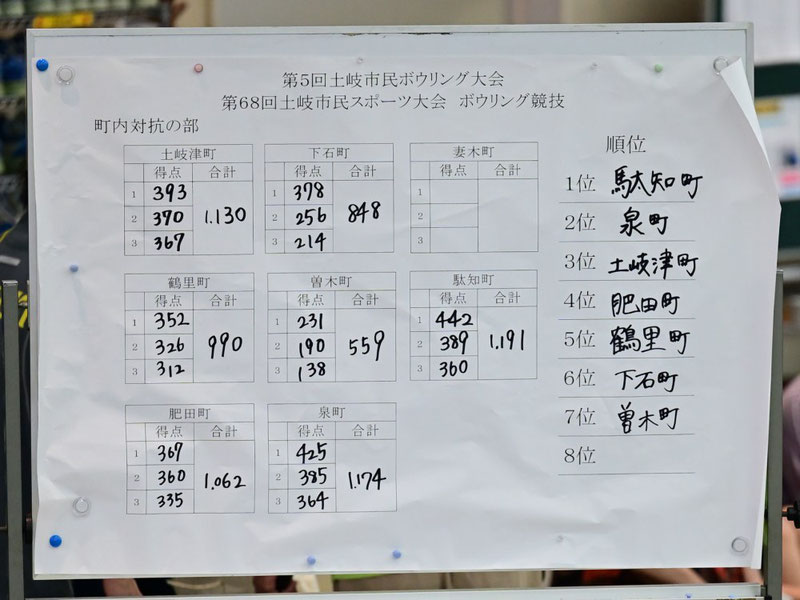 第5回土岐市民ボウリング大会
第68回土岐市民スポーツ大会 ボウリング競技
町内対抗の部
土岐津町
得点 合計
1 393
2 370 1.130
3 367
下石町
得点 合計
1 378
2 256 848
3 214
妻木町
得点 合計
1
2
3
鶴里町
得点 合計
1 352
2 326 990
3 312
曽木町
得点 合計
1 231
2 190 559
3 138
駄知町
得点 合計
1 442
2 389 1.191
3 360
肥田町
得点 合計
1 367
2 360 1.062
3 335
泉町
得点 合計
1 425
2 385 1.174
3 364
順位
1位 馬太知町
2位 泉町
3位 土岐津町
4位 肥田町
5位 鶴里町
6位 下石町
7位 曽木町
8位